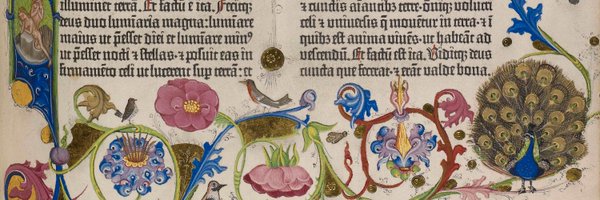 illuminēt terrā. Et factū ē ita. Fecitq;
deus duo luminaria magna: luminare
maius ut p̄esset diei et luminare min⁹
ut p̄esset nocti & stellas· & posuit eas in
firmamēto celi ut lucerent sup terrā: et
& cunctis aīantib; terre· oīq; volucri
celi & universis q̄ moventur in terra· & ī
quib; est anima vivēs· ut habeāt ad
vescendū. Et factū est ita. Viditq; deus
cuncta que fecerat· & erāt valde bona.